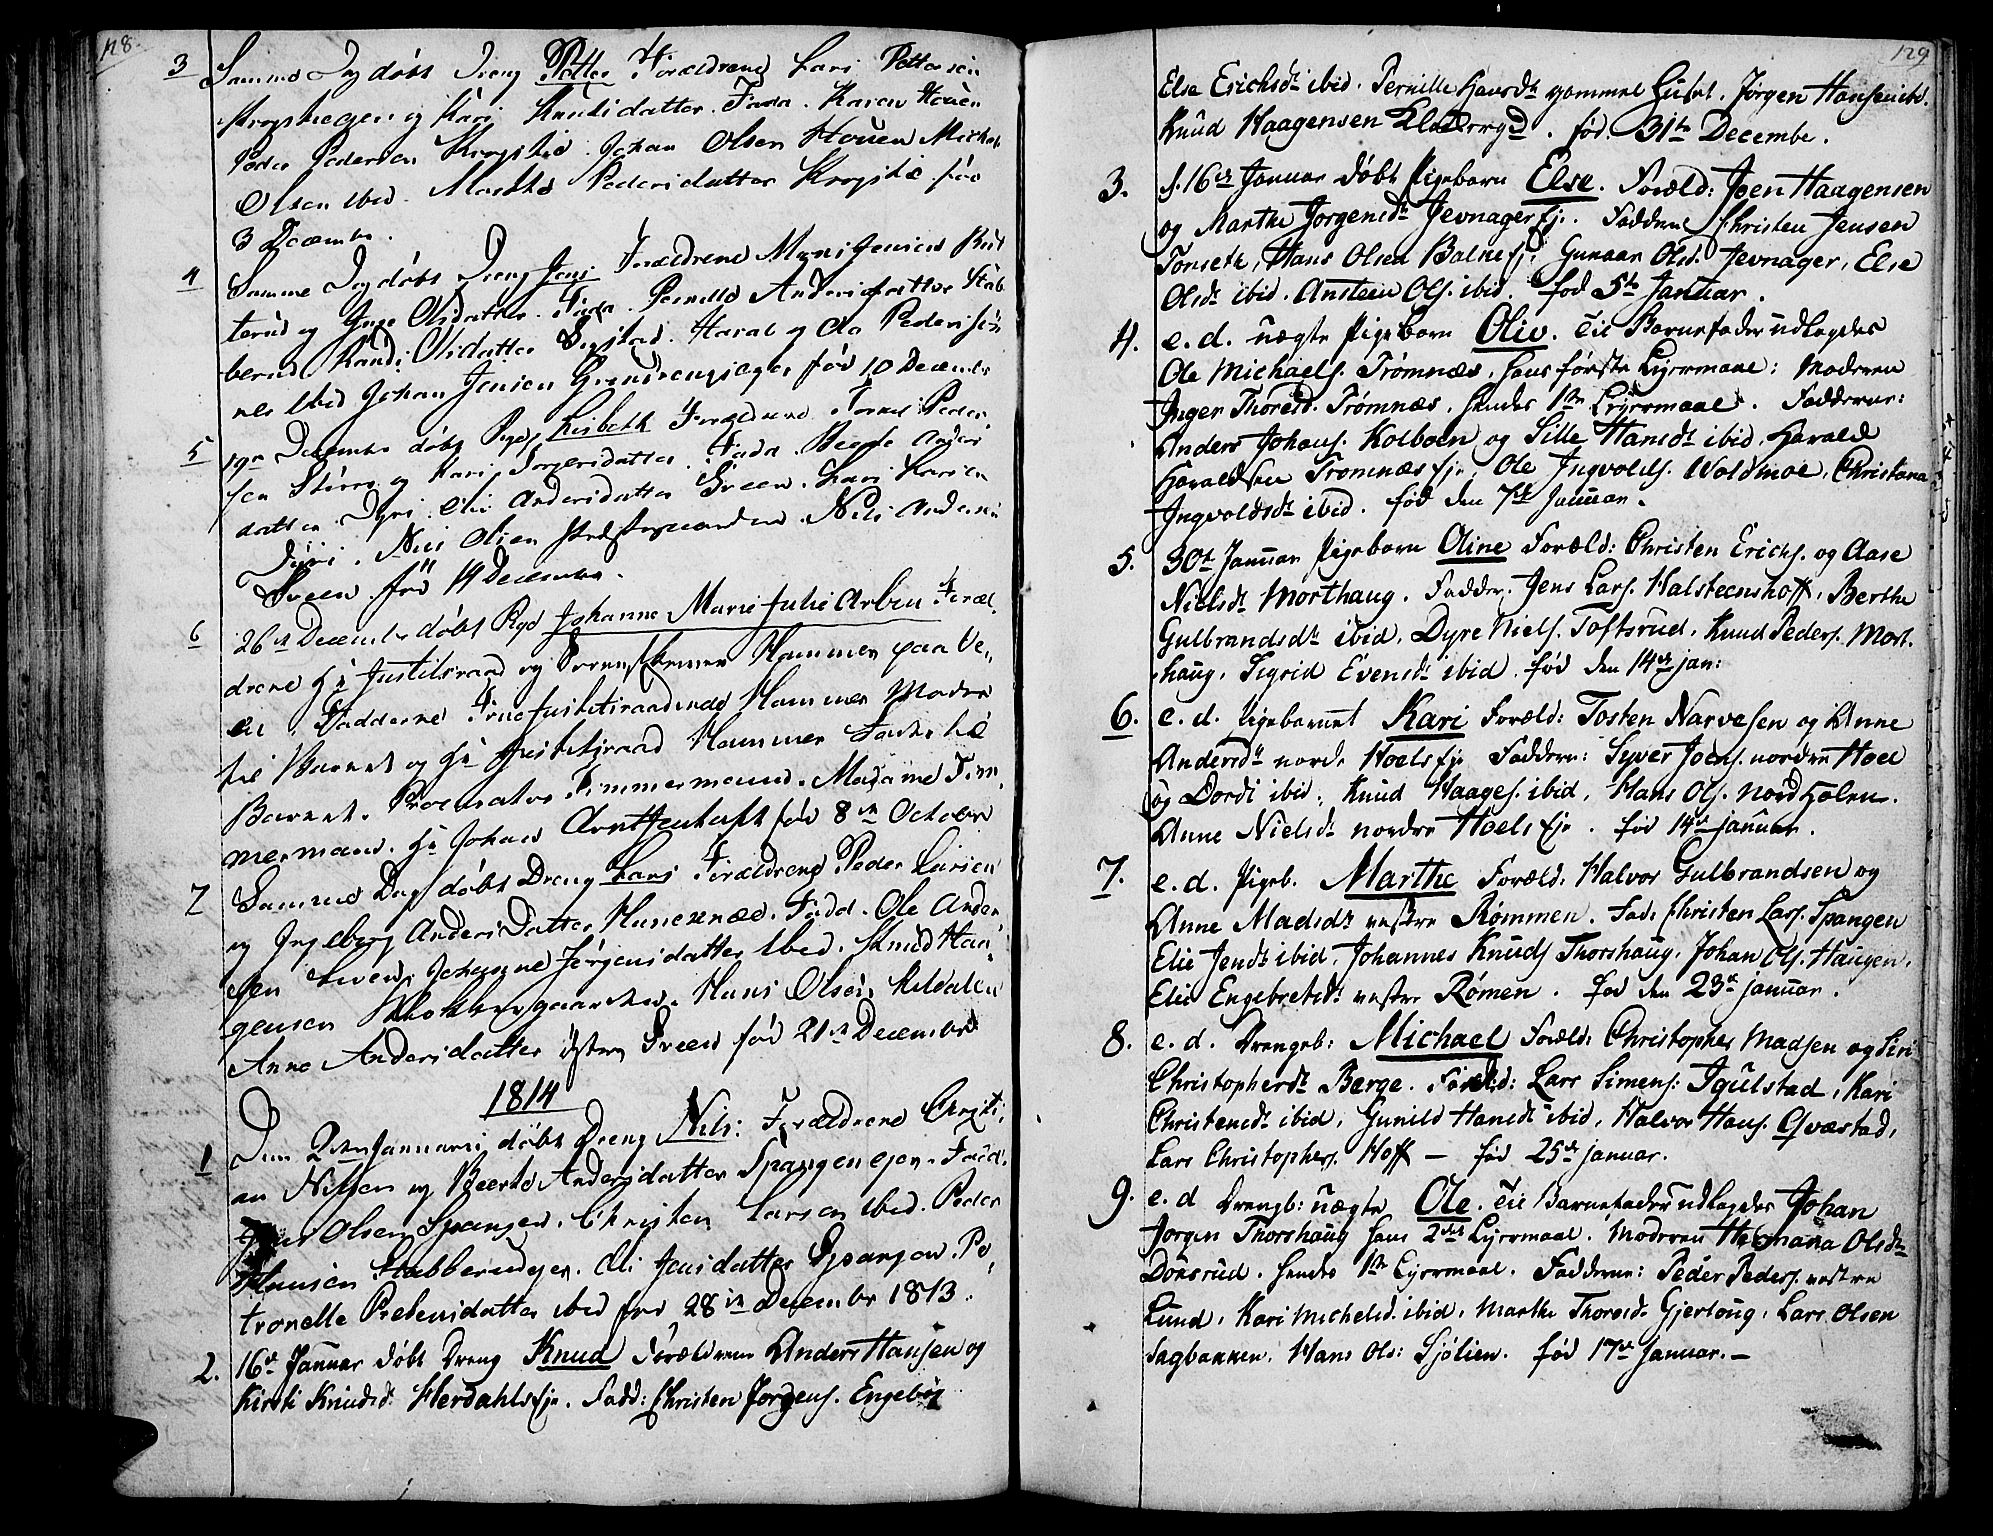 128.
3 Samme Dag døbt Dreng Petter Forældrene Lars Pettersen
Krogshagen og Kari Knutsdatter. Fadd. Karen Houen
Peder Pedersen Krogstie. Johan Olsen Houen Michel
Olsen ibid. Marthe Pedersdatter Krogstie. fød
3 Decembr.
4 Samme Dag døbt Dreng Jens Forældrene Mons Jensen
terud og Inge Olsdatter. Fadd. Pernelle Andersdatter Stab
berud Randi Olsdatter Sogstad. Haral og Ola Peders
nes ibid Johan Jensen fød 10 Decembr
5 19de Decembr døbt Pige Lisbeth Forældrene Peder
sen Stürre og Kari Jorgensdatter. Fadd. Berthe Anders
datter Dyri. Eli Andersdatter Sveen. Lars Larsen
Dyri. Niels Olsen Præstegaarden. Nils Andersen
Sveen. fød 14 Decembr.
6 26de Decembr døbt Pige Johanne Marie Julie Arbin Foræl,
drene Hr. Justitsraad og Hammer paa Ve,
en. Fadderne Frue Justitsraadinde Hammer Moder
til Barnet og Hr Justitsraad Hammer Fader til
Barnet. Procurator Timmermand. Madame Tim
mermand. Hr Johan fød 8de October
7 Samme Dag døbt Dreng Lars Forældrene Peder Larsen
og Ingeborg Anders Datter Hunexnæs. Fadd. Ole Ander
sen Sveen, Johanne Jörgensdatter ibid. Knud Haa,
gensen Klokkergaarden. Hans Olsen
Anne Andersdatter østre Sveen fød 21de Decembr
1814
1 Den 2den Januarii døbt Dreng Nils: Forældrene Christi,
an Nilsen og Beerte Andersdatter Spangen ejer. Fadd.
Olsen Spangen. Christen Larsen ibid. Peder
Hansen Stabberudejer. Eli Jensdatter Spangen. Pe,
tronelle Prebensdatter ibid fød 28de December 1813.
2. 16de Januar døbt Dreng Knud Forældrene Anders Hansen og
Kirsti Knudsd. Herdahls Eje. Fadd: Christen Jørgens. Engebøl
129
Else Erichsdr ibid. Pernille Hansdr gammel Huset. Jørgen Hansen ibid.
Knud Haagensen Klokkergd. fød 31te Decembe.
3. d. 16de Januar døbt Pigebarn Else. Foræld: Joen Haagensen
og Marthe Jørgensdr Jevnager Eje. Faddere Christen Jensen
Tonsete, Hans Olsen Balke Ej. Gunaar Olsd. Jevnager, Else
Olsdr ibid. Ansteen Ols. ibid. fød 5te Januar.
4. e. d. uægte Pigebarn Oliv. Til Barnefader udlagdes
Ole Michaels. Trømnæs, hans første Lejermaal: Moderen
Inger Thoresd. Trømnæs, hendes 1ste Lejermaal. Fadderne:
Anders Johans. Kolboen og Sille Hansdr ibid, Harald
Haraldsen Tromnæs Eje, Ole Ingvolds. Woldmoe, Christana
Ingvoldsdr ibid. fød den 7de Januar.
5. 30te Januar Pigebarn Oline Foræld: Christen Erichs. og Aase
Nielsdr Morthaug. Fadder. Jens Lars. Halsteenshoff, Berthe
Gulbrandsdr ibid, Dyre Niels. Toftsrud, Knud Peders. Mort-
haug, Sigrid Evensdr ibid. fød den 14de jan:
6. e. d. Pigebarnet Kari Foræld: Tosten Narvesen og Anne
Andersdr nordr Hoels Eje Faddere: Syver Joens. nordre Hoel
og Dordi ibid, Knud Haages. ibid, Hans Ols. Nordholen.
Anne Nielsdr nordre Hoels Eje. fød 14de januar.
7. e. d. Pigeb. Marthe Foræld: Halvor Gulbrandsen og
Anne Madsdr vestre Rømmen. Fad: Christen Lars. Spangen
Elie Jensdr ibid, Johannes Knuds Thorshaug, Johan Ols. Haugen,
Elie Engebretsdr vestre Rømen. fød den 23de januar.
8. e. d. Drengeb: Michael Foræld: Christopher Madsen og Siri
Christophersdr Berge. Foræld: Lars Simens: Igulstad, Kari
Christensdr ibid, Gunild Hansdr ibid, Halvor Hans. Qværstad,
Lars Christophers. Hoff — fød 25de januar.
9. e. d Drengb: uægte Ole. Til Barnefader udlagdes Johan
Jorgen Thorshaug hans 2det Lejermaal. Moderen Hermana Olsdr
Dousrud. hendes 1ste Lejermaal. Fadderne: Peder Peders. vestre
Lund, Kari Michelsd. ibid, Marthe Thoresd. Gjerloug, Lars Olsen
Sagbakken, Hans Ols: Sjølien. fød 17de Januar.—